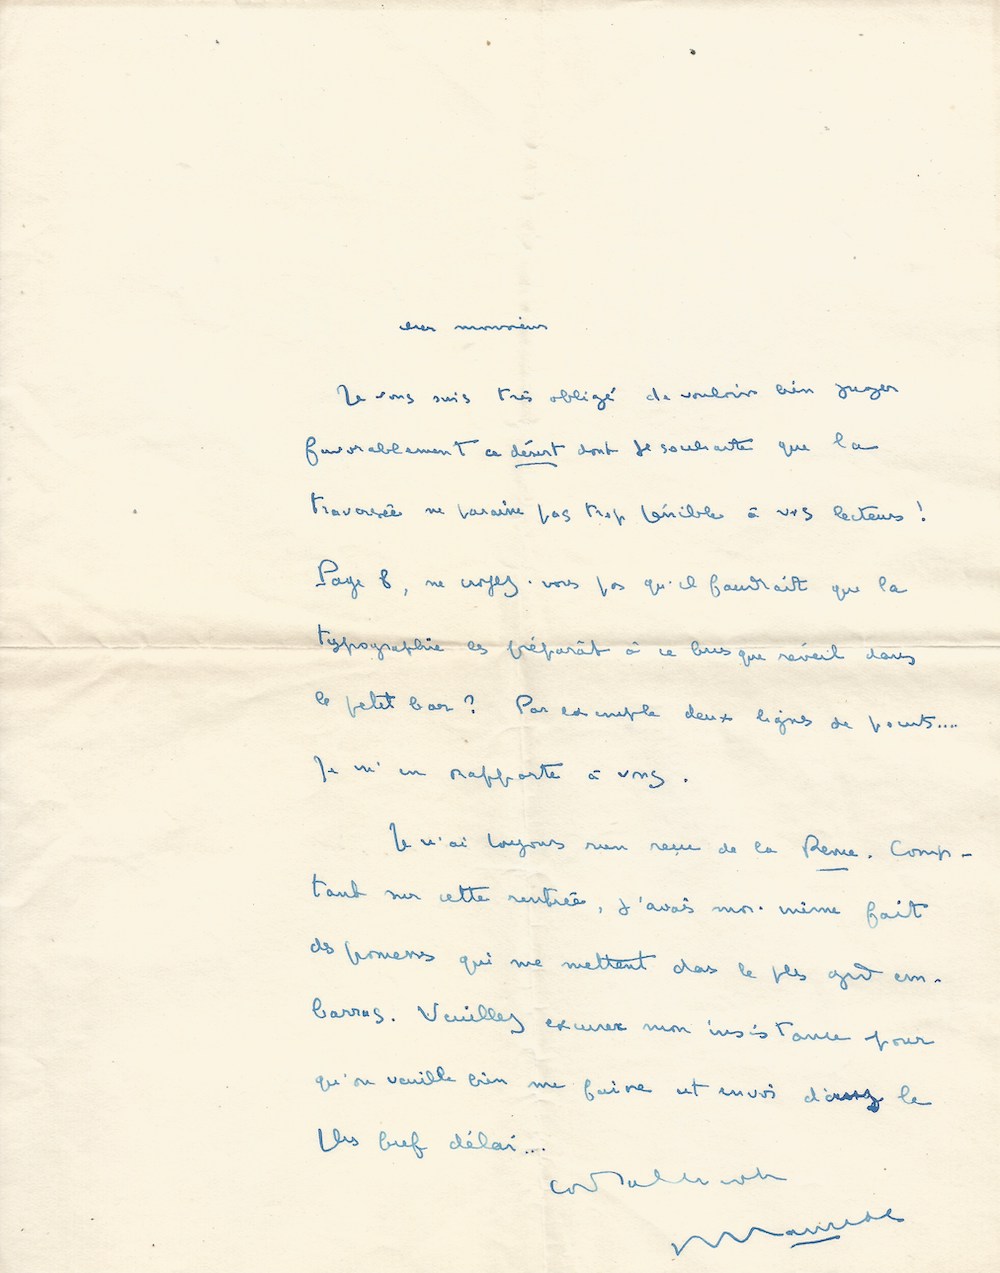 cher monsieur
Je vous suis très obligé de vouloir bien juger
favorablement ce désert dont je souhaite que la
traversée ne paraisse pas trop pénible à vos lecteurs !
Page 8, ne croyez-vous pas qu'il faudrait que la
typographie les préparât à ce brusque réveil dans
le petit bar ? Par exemple deux lignes de points....
Je m'en rapporte à vous.
Je n'ai toujours rien reçu de la Revue. Comp-
tant sur cette rentrée, j'avais moi-même fait
des promesses qui me mettent dans le plus grd em-
barras. Veuillez excuser mon insistance pour
qu'on veuille bien me faire cet envoi dans le
plus bref délai...
cordialement
Mauriac